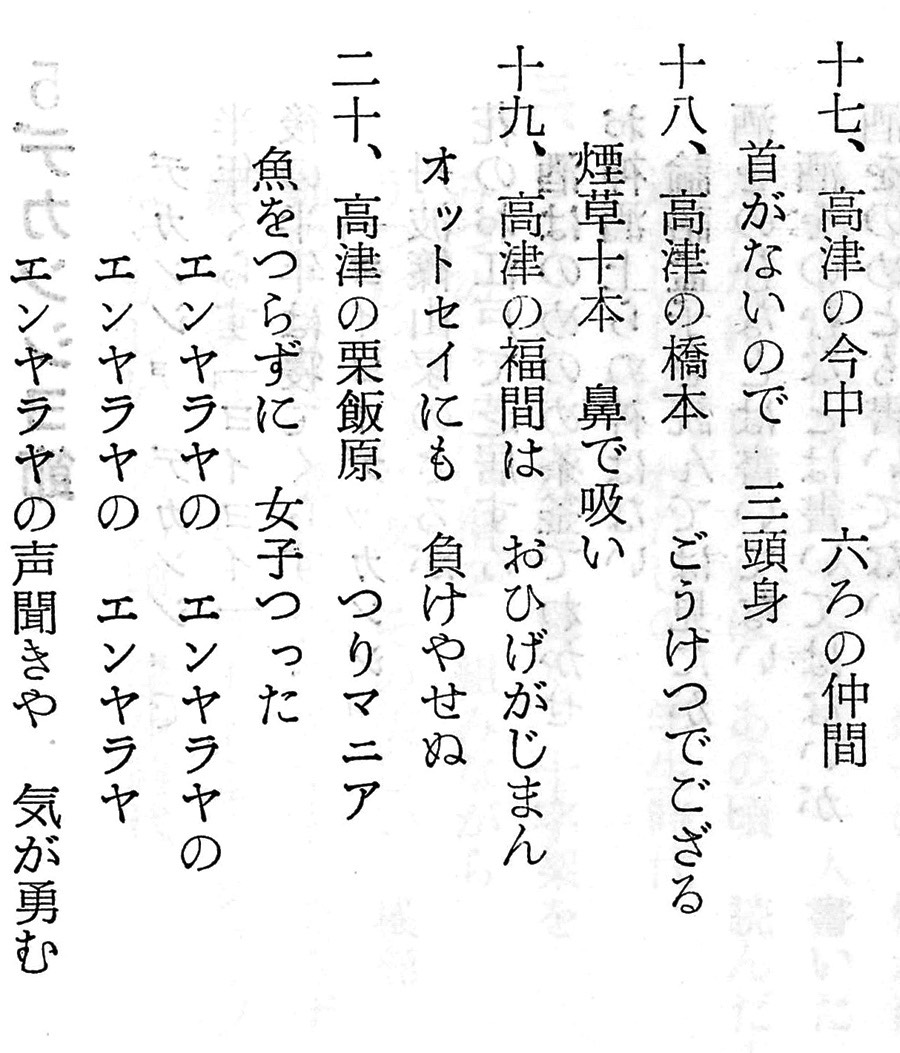 十七、高津の今中　六ろの仲間
首がないので　三頭身
十八、高津の橋本　ごうけつでござる
煙草十本　鼻で吸い
十九、高津の福間は　おひげがじまん
オットセイにも　負けやせぬ
二十、高津の栗飯原　つりマニア
魚をつらずに　女子つった
エンヤラヤの　エンヤラヤの
エンヤラヤの　エンヤラヤ
エンヤラヤの声聞きや　気が勇む